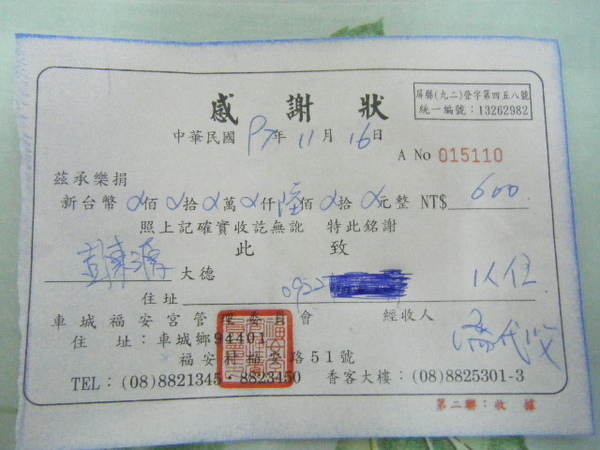 感謝狀
屏縣(九二)登字第四五八號
統一編號:13262982
中華民國 97年 11月 16日
A No 015110
茲承樂捐
新台幣 α佰 α拾 α萬 α仟 陸佰 α拾 α元整 NT$ 600
照上記確實收訖無訛 特此銘謝
此致
大德
住址 0922
車城福安宮管理委員會 經收人
住 址:車城鄉94401
福安村福安路51號
TEL:(08)8821345·8823450 香客大樓:(08)8825301-3
第二聯:收 據